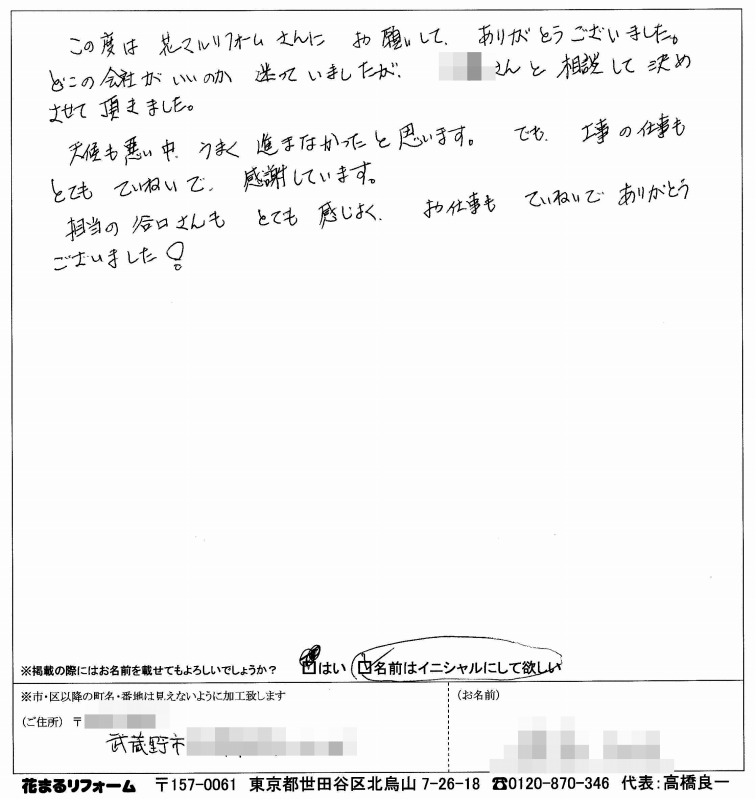 この度は 花マルリフォームさんに お願いして、ありがとうございました。
どこの会社がいいのか 迷っていましたが、 さんと相談して決め
させて頂きました。
天候も悪い中、うまく進まなかったと思います。でも、工事の仕事も
とてもていねいで、感謝しています。
担当の谷口さんも とても感じよく、お仕事も ていねいで ありがとう
ございました!
※掲載の際にはお名前を載せてもよろしいでしょうか? はい 名前はイニシャルにして欲しい
※市・区以降の町名・番地は見えないように加工致します (お名前)
(ご住所) 〒
武蔵野市
花まるリフォーム 〒157-0061 東京都世田谷区北烏山 7-26-18 ☎0120-870-346 代表:高橋良一